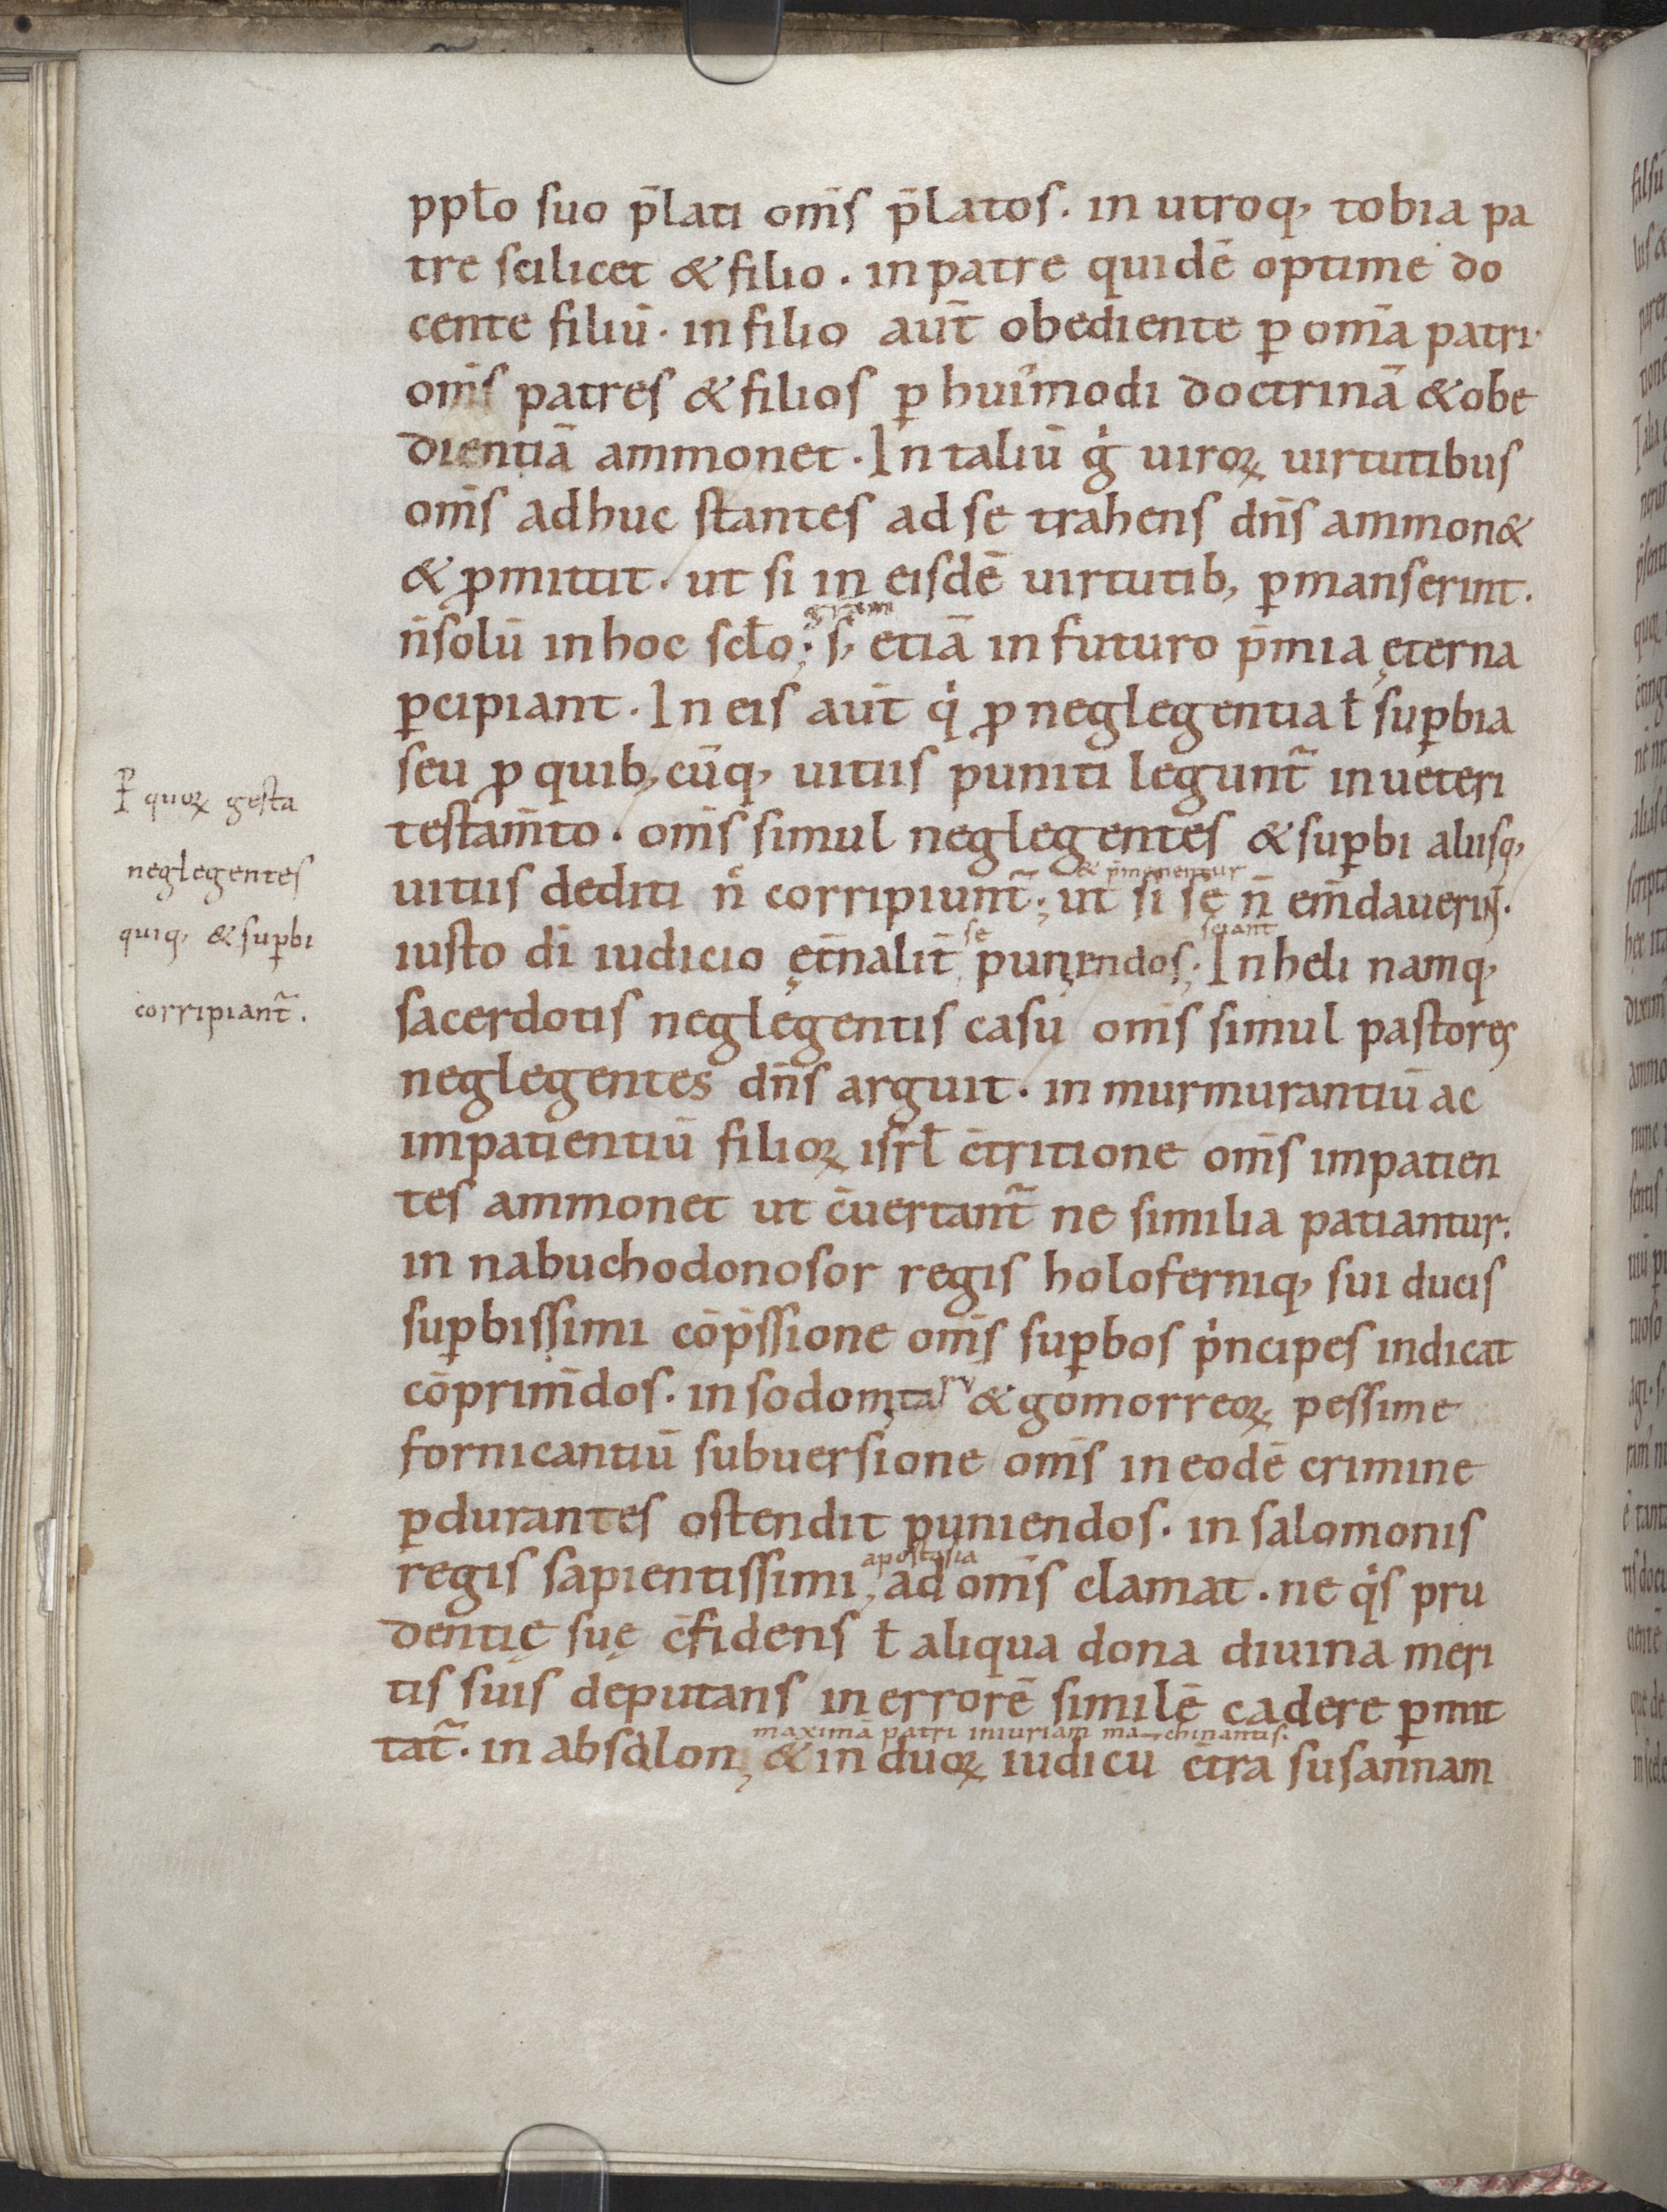 ppło suo p̄lati om̄s p̄latos. in utroq; tobia pa
tre scilicet & filio. in patre quidē optime do
cente filiū. in filio aut̄ obediente ꝑ om̄a patri.
om̄s patres & filios ꝑ huiꝰmodi doctrinā & obe
dientiā ammonet. In taliū g̍ uiroꝝ uirtutibus
om̄s adhuc stantes ad se trahens dn̄s ammon&
& ꝓmittit. ut si in eisdē uirtutib; ꝑmanserint.
n̄ solū in hoc scło; s; etiā in futuro p̄mia ęterna
ꝑcipiant. In eis aut̄ q̍ ꝓ neglegentia ł suꝑbia
seu ꝓ quib; cūq; uitiis puniti legunt᷑ in ueteri
testam̄to. om̄s simul neglegentes & suꝑbi aliisq;
& p̄monentur
uitiis dediti n̊ corripiunt᷑; ut si se n̄ em̄dauerint.
se sciant
iusto dī iudicio ęt̄nalit̄ puniendos; In heli namq;
sacerdotis neglegentis casu om̄s simul pastores
neglegentes dn̄s arguit. in murmurantiū ac
impatientiū filioꝝ isrł c̄tritione om̄s impatien
tes ammonet ut c̄uertant᷑ ne similia patiantur.
in nabuchodonosor regis holoferniq; sui ducis
suꝑbissimi cōp̄ssione om̄s suꝑbos p̍ncipes indicat
cōprim̄dos. in sodomitarū & gomorreoꝝ pessime
fornicantiū subuersione om̄s in eodē crimine
ꝑdurantes ostendit puniendos. in salomonis
apostasia
regis sapientissimi, ad om̄s clamat. ne q̍s pru
dentię suę c̄fidens ł aliqua dona diuina meri
tis suis deputans in errorē similē cadere ꝑmit
maximā patri iniuriam machinantis.
tat᷑. in absalon, & in duoꝝ iudicū c̄tra susannam
Ꝑ quoꝝ gesta
neglegentes
quiq; & suꝑbi
corripiant᷑.